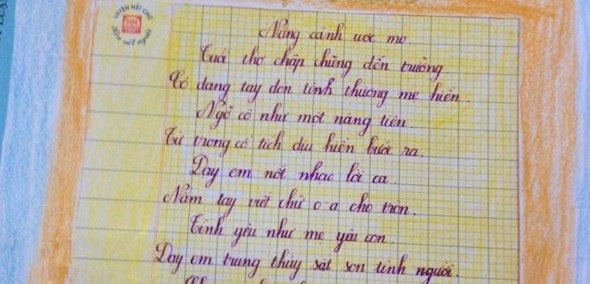 LUYỆN NÉT CHỮ
Rèn nết người
Nâng cánh ước mơ
Tuổi thơ chập chững đến trường
Cô dang tay đón tình thương mẹ hiền.
Ngỡ cô như một nàng tiên
Từ trong cổ tích dịu hiền bước ra.
Dạy em nốt nhạc lời ca
Nắm tay viết chữ o-a cho tròn.
Tình yêu như mẹ yêu con
Dạy em trung thủy sắt son tình người.